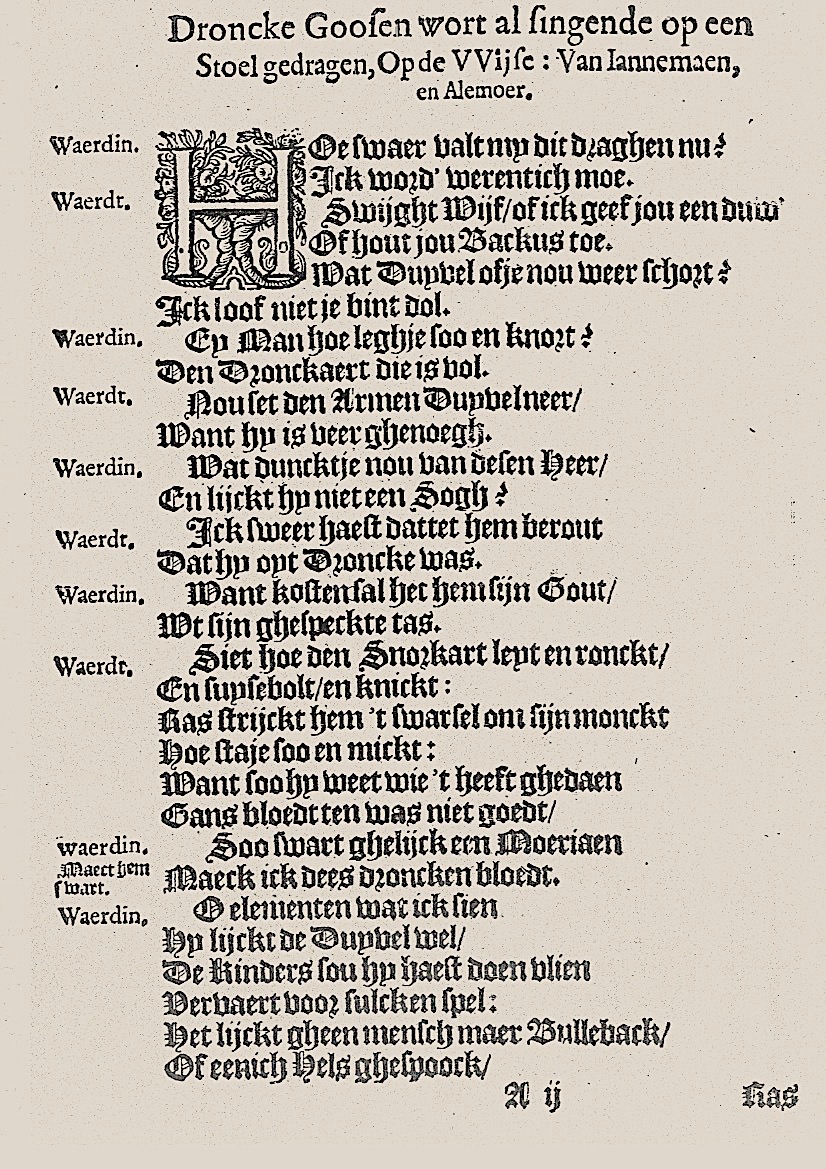 Droncke Gooſen wort al ſingende op een
Stoel gedragen, Op de VVijſe : Van Iannemaen,
en Alemoer.
Waerdin. HOe ſwaer valt my dit draghen nu?
Ick word' werentich moe.
Waerdt. Swijght Wijf/of ick geef jou een duw'
Of hout jou Backus toe.
Wat Duyvel ofje nou weer ſchort?
Ick loof niet je bint dol.
Waerdin. Ey Man hoe leghje ſoo en knort?
Den Dronckaert die is vol.
Waerdt. Nou ſet den Armen Duyvel neer/
Want hy is veer ghenoegh.
Waerdin. Wat duncktje nou van deſen Heer/
En lijckt hy niet een Sogh?
Waerdt. Ick ſweer haeſt dattet hem berout
Dat hy oyt Droncke was.
Waerdin. Want koſten ſal het hem ſijn Gout/
Wt ſijn gheſpeckte tas.
Waerdt. Siet hoe den Snorkart leyt en ronckt/
En ſuyſebolt/en knickt:
Ras ſtrijckt hem 't ſwartſel om ſijn monckt
Hoe ſtaje ſoo en mickt:
Want ſoo hy weet wie 't heeft ghedaen
Gans bloedt ten was niet goedt/
Waerdin. Soo ſwart ghelijck een Moeriaen
Maect hem
ſwart. Maeck ick dees droncken bloedt.
Waerdin, O elementen wat ick ſien
Hy lijckt de Duyvel wel/
De Kinders ſou hy haeſt doen vlien
Vervaert voor ſulcken ſpel:
Het lijckt gheen menſch maer Bulleback/
Of eenich Hels gheſpoock/
A ij Ras